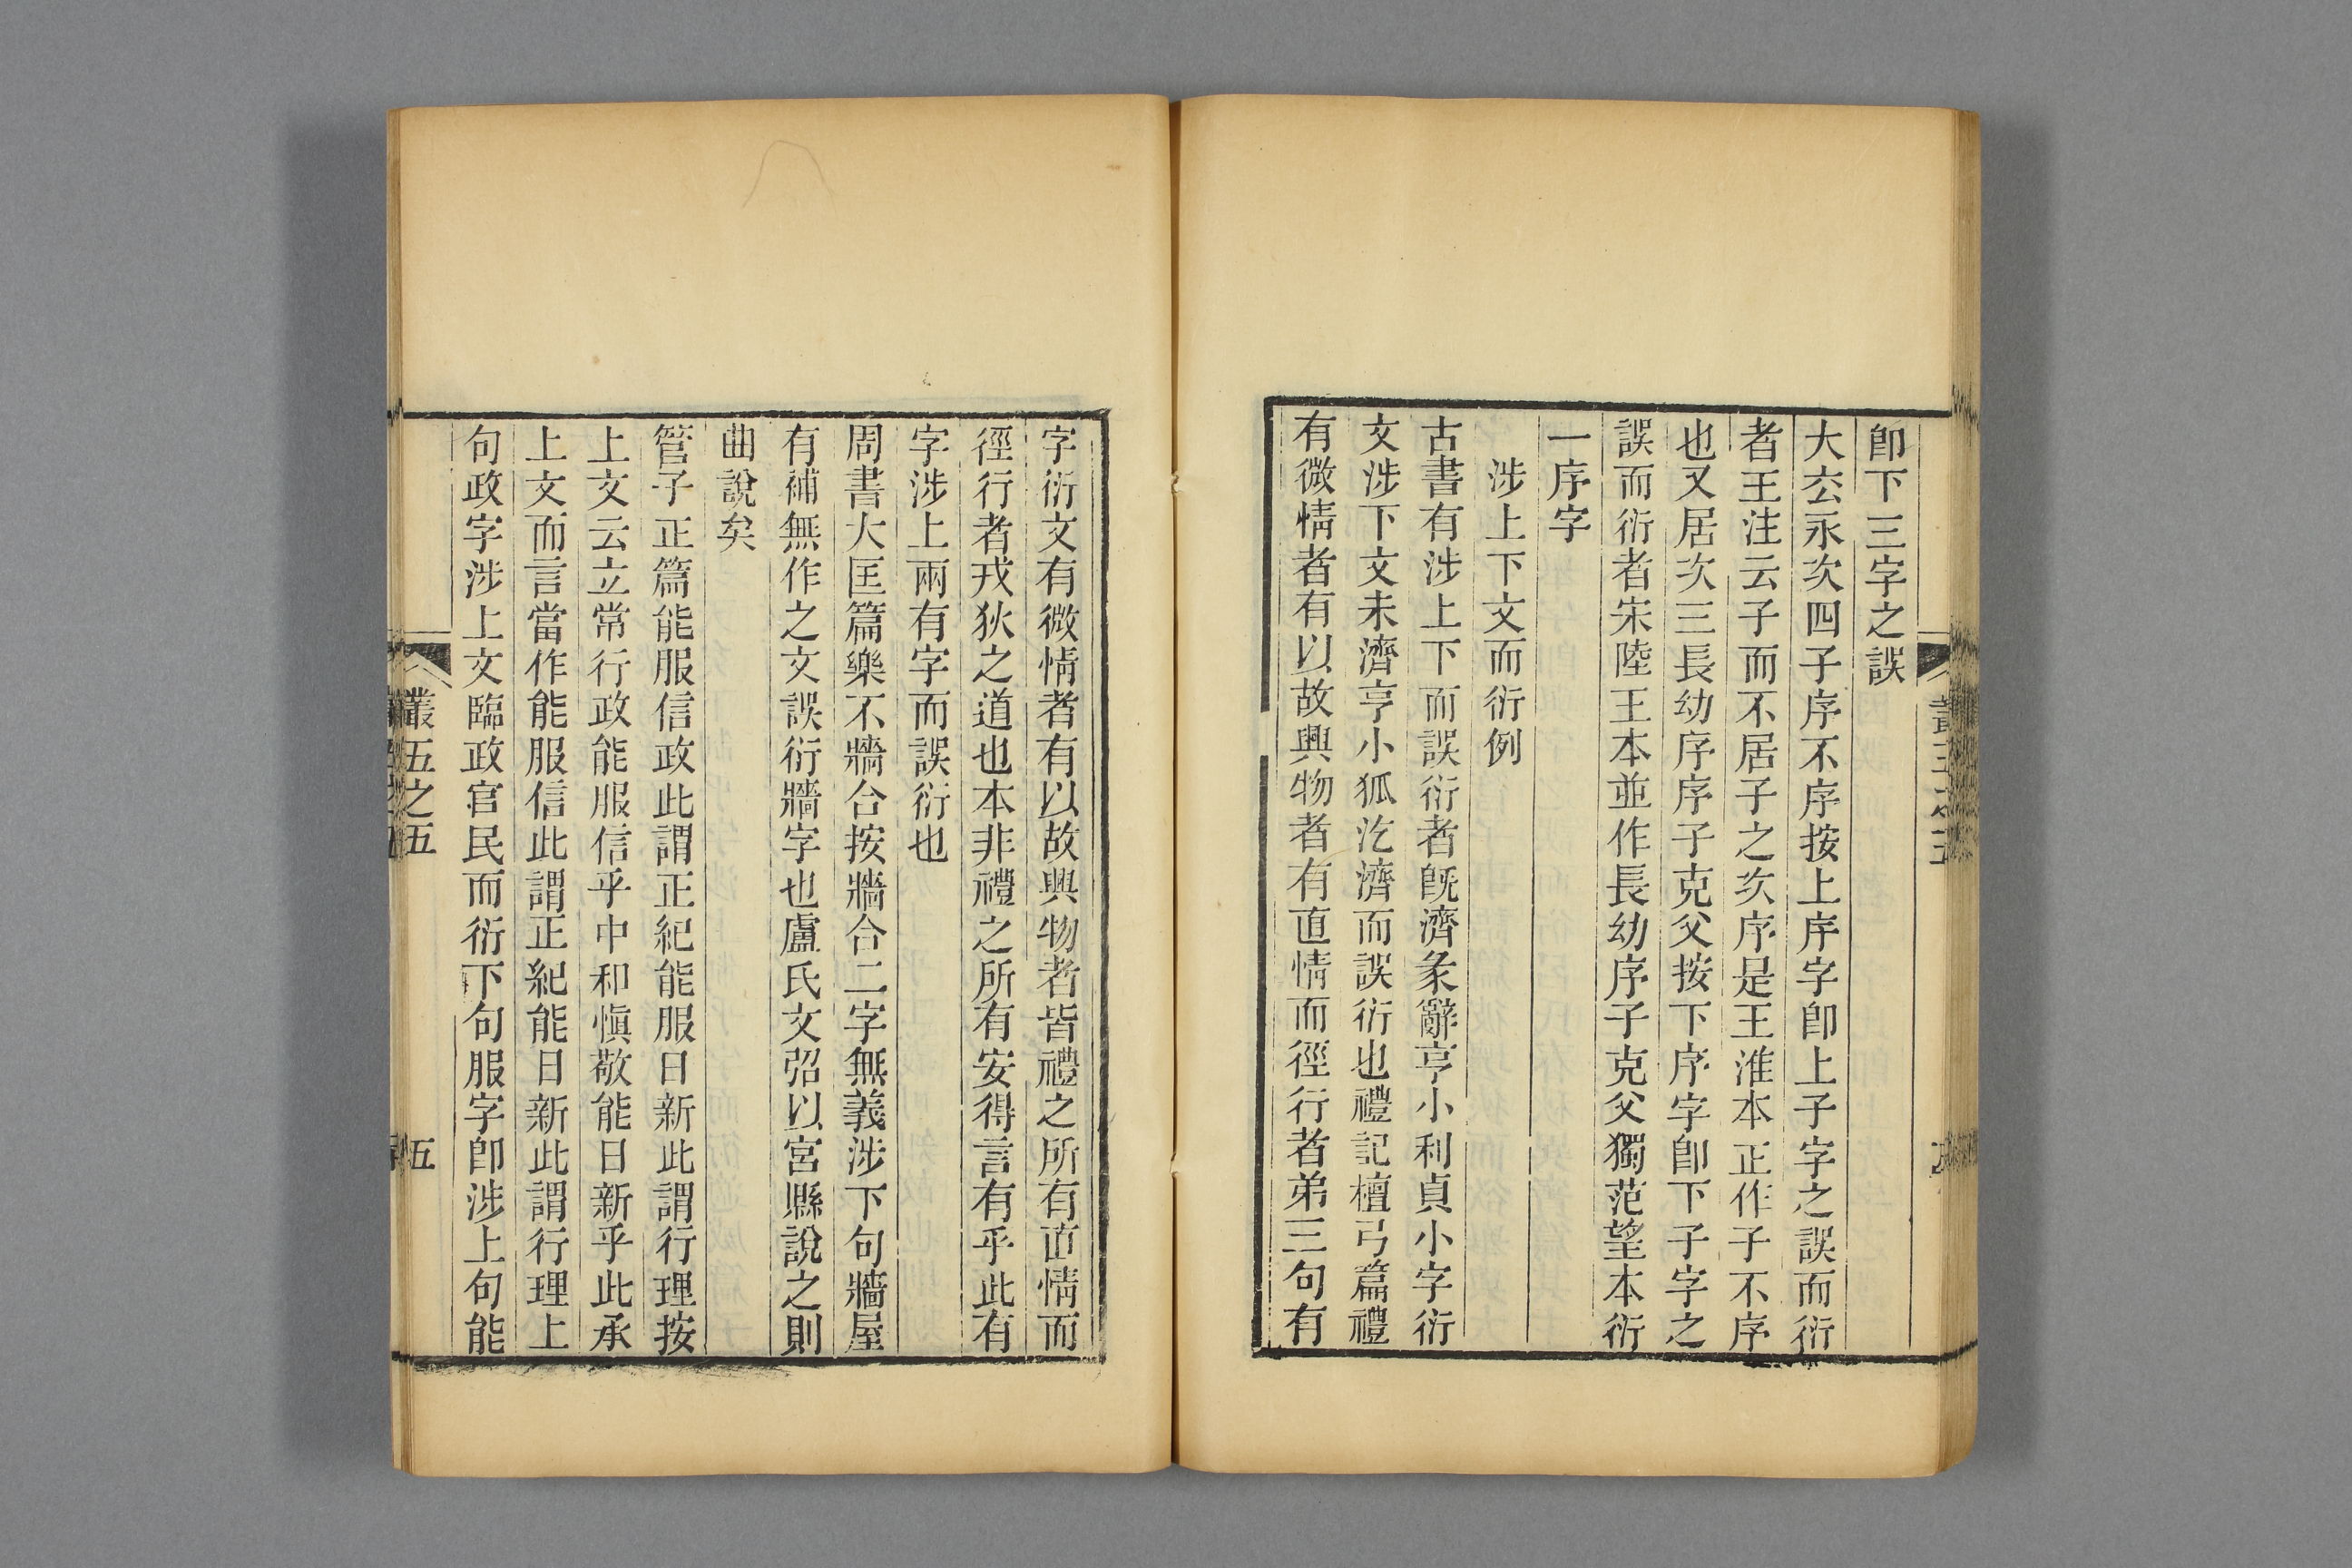 卽下三字之誤
大玄永次四子序不序按上序字卽上子字之誤而衍
者王注云子而不居子之次序是王淮本正作子不序
也又居次三長幼序序子克父按下序字卽下子字之
誤而衍者宋陸王本並作長幼序子克父獨范望本衍
一序字
涉上下文而衍例
古書有涉上下而誤衍者旣濟彖辭亨小利貞小字衍
文涉下文未濟亨小狐汔濟而誤衍也禮記檀弓篇禮
有微情者有以故興物者有直情而徑行者弟三句有
字衍文有微情者有以故興物者皆禮之所有直情而
徑行者戎狄之道也本非禮之所有安得言有乎此有
字涉上兩有字而誤衍也
周書大匡篇樂不牆合按牆合二字無義涉下句牆屋
有補無作之文誤衍牆字也盧氏文弨以宮縣說之則
曲說矣
管子正篇能服信政此謂正紀能服日新此謂行理按
上文云立常行政能服信乎中和愼敬能日新乎此承
上文而言當作能服信此謂正紀能日新此謂行理上
句政字涉上文臨政官民而衍下句服字卽涉上句能
叢五之五
五